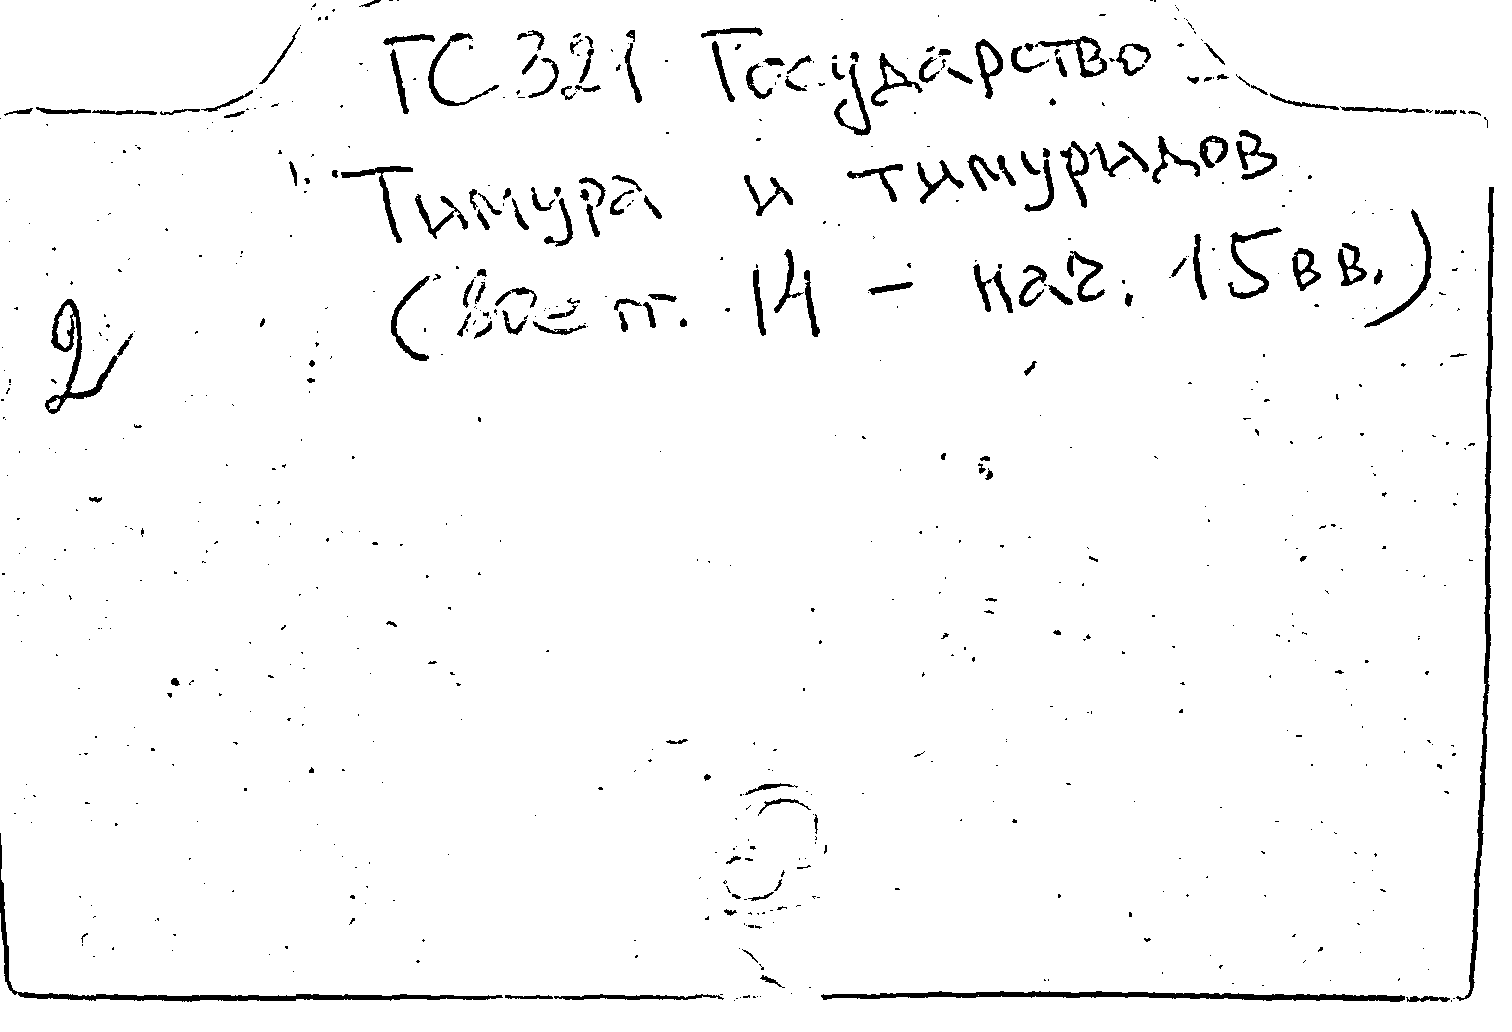 ГС321 Государство
Тимура и тимуридов
(80е гг. 14 - нач. 15 вв.)
2